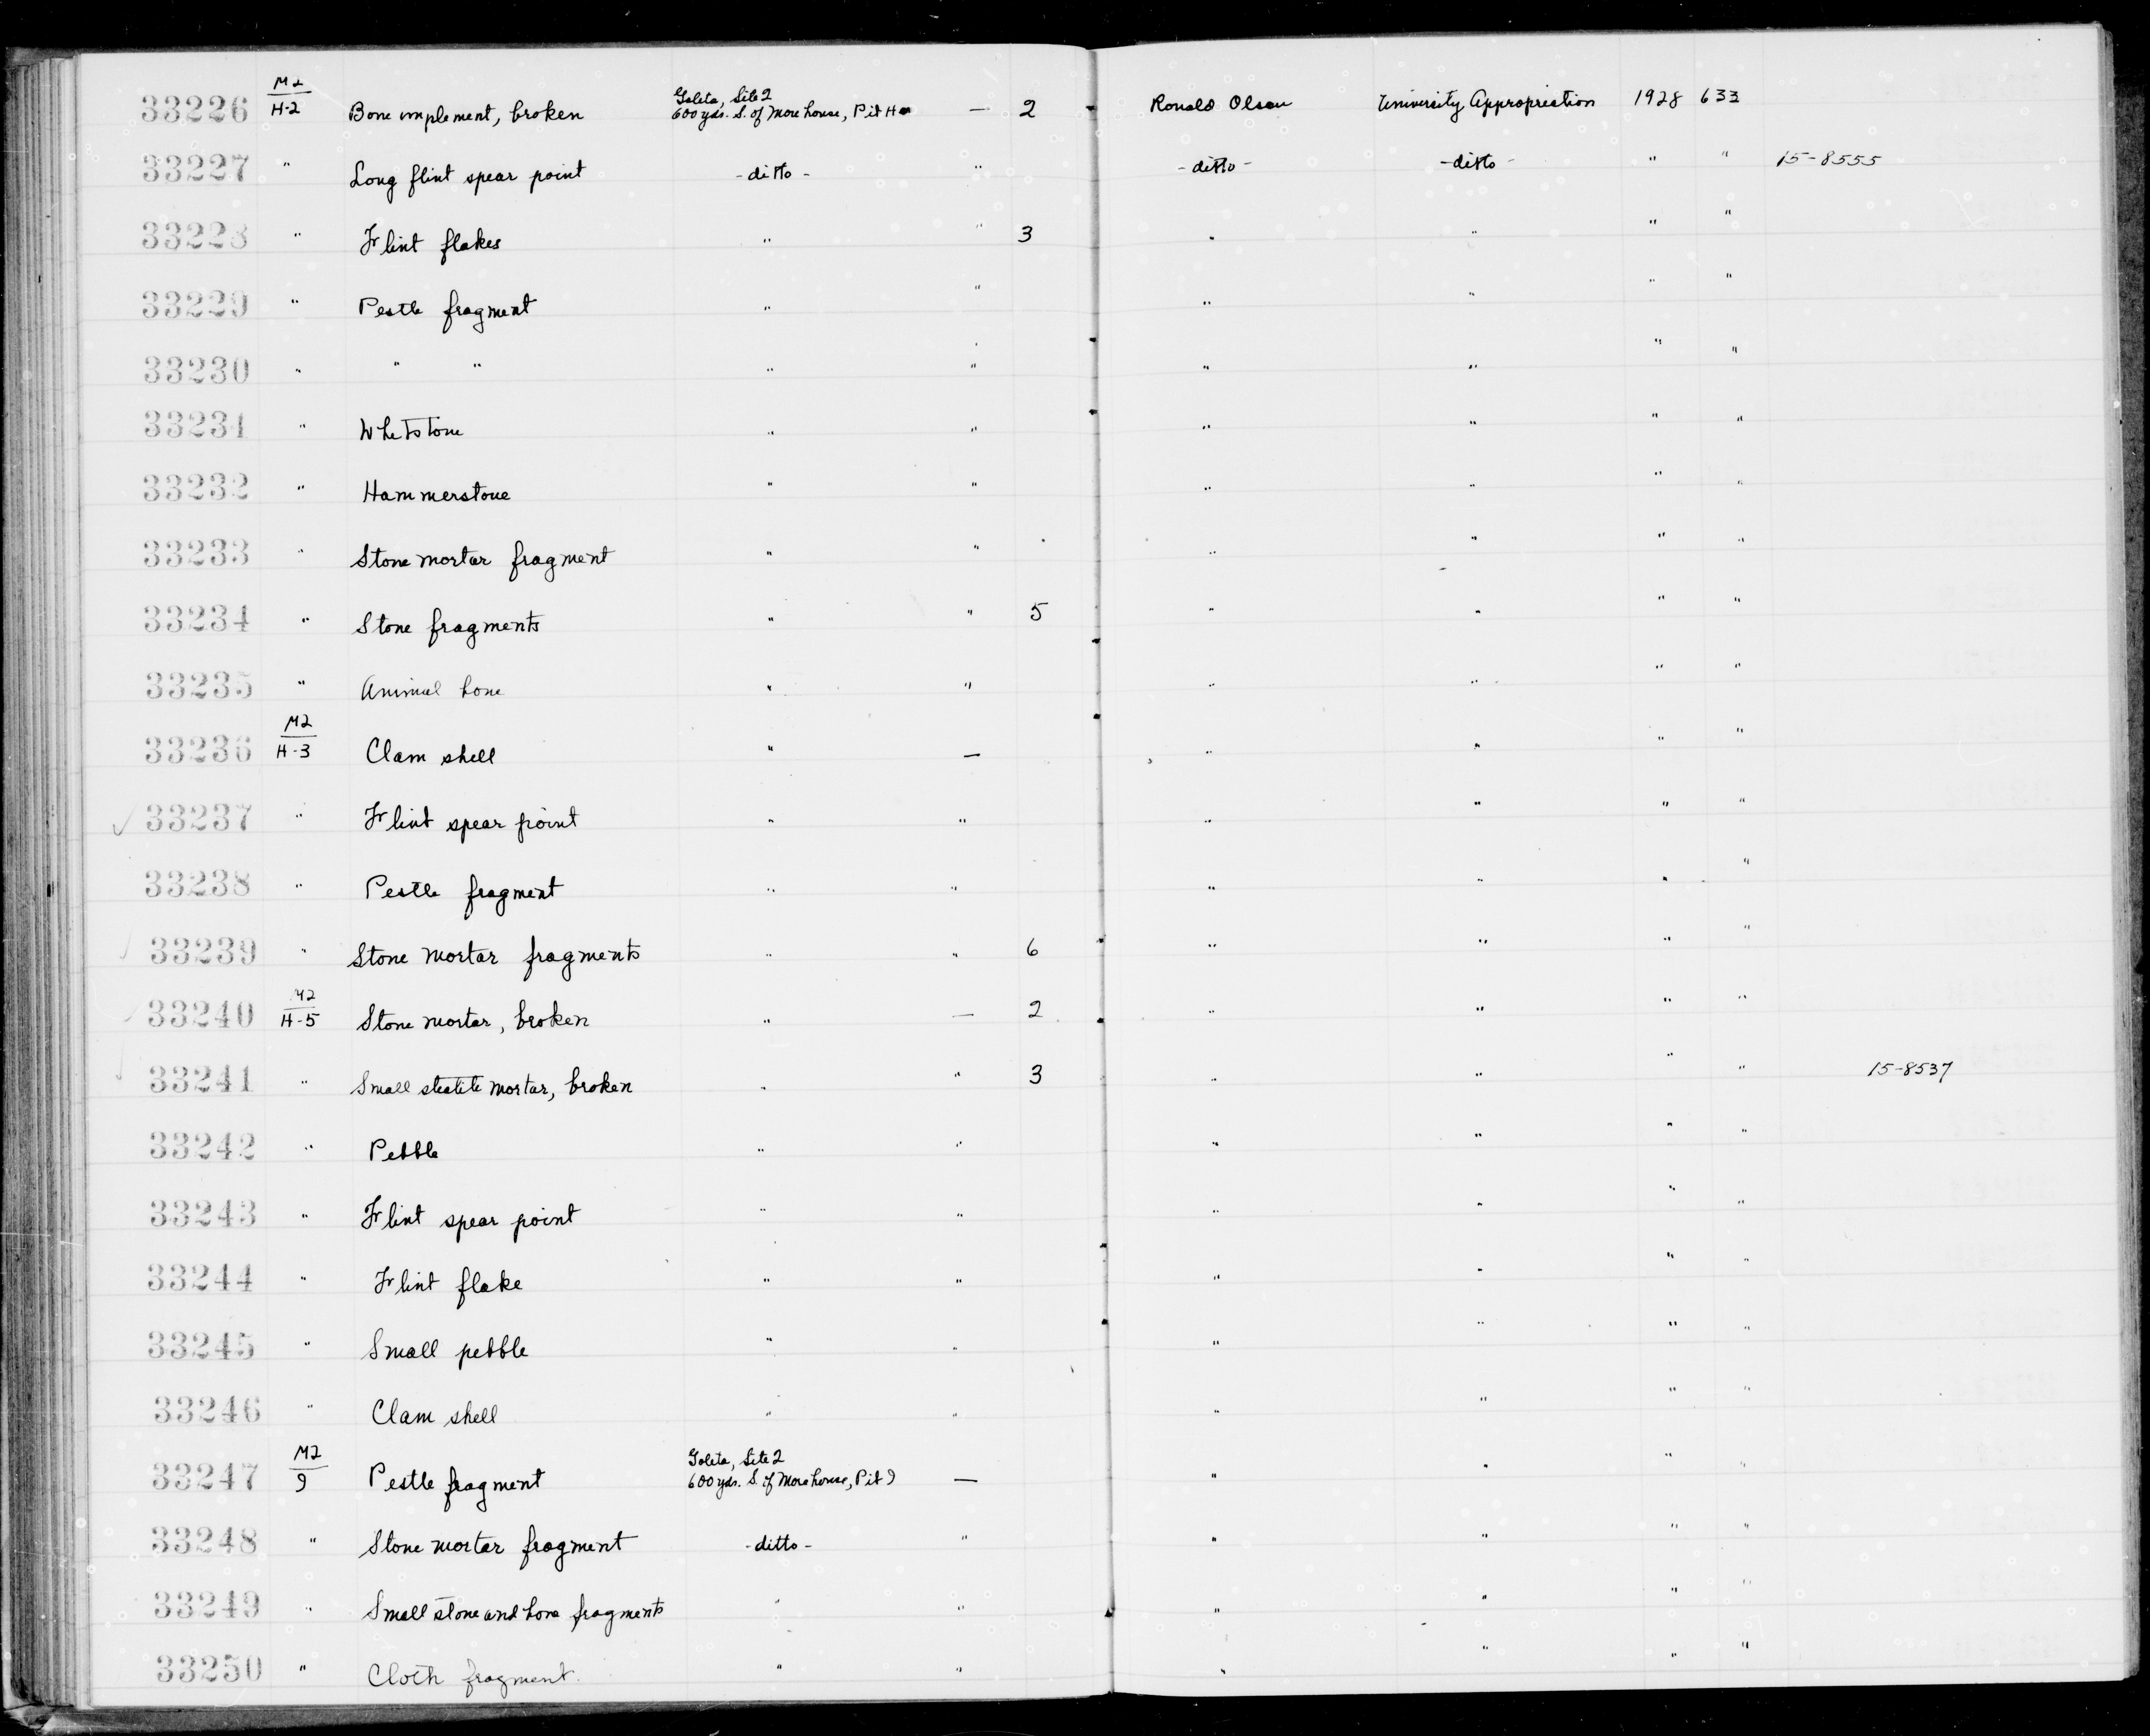 33226 M2/H-2 Bone implement, broken Goleta, Site 2 600 yds. S. of More house, Pit H — 2 Ronald Olson University Appropriation 1928 633
33227 " Long flint spear point -ditto- " -ditto- -ditto- " " 15-8555
33228 " Flint flakes " " 3 " " " "
33229 " Pestle fragment " " " " " "
33230 " " " " " " " " "
33231 " Whetstone " " " " " "
33232 " Hammerstone " " " " " "
33233 " Stone mortar fragment " " " " " "
33234 " Stone fragments " " 5 " " " "
33235 " Animal bone " " " " " "
33236 M2/H-3 Clam shell " — " " " "
✓ 33237 " Flint spear point " " " " " "
33238 " Pestle fragment " " " " " "
✓ 33239 " Stone mortar fragments " " 6 " " " "
✓ 33240 M2/H-5 Stone mortar, broken " — 2 " " " "
✓ 33241 " Small steatite mortar, broken " " 3 " " " " 15-8537
33242 " Pebble " " " " " "
33243 " Flint spear point " " " " " "
33244 " Flint flake " " " " " "
33245 " Small pebble " " " " " "
33246 " Clam shell " " " " " "
33247 M2/9 Pestle fragment Goleta, Site 2 600 yds. S. of More house, Pit 9 — " " " "
33248 " Stone mortar fragment -ditto- " " " " "
33249 " Small stone and bone fragments " " " " " "
33250 " Cloth fragment. " " " " " "